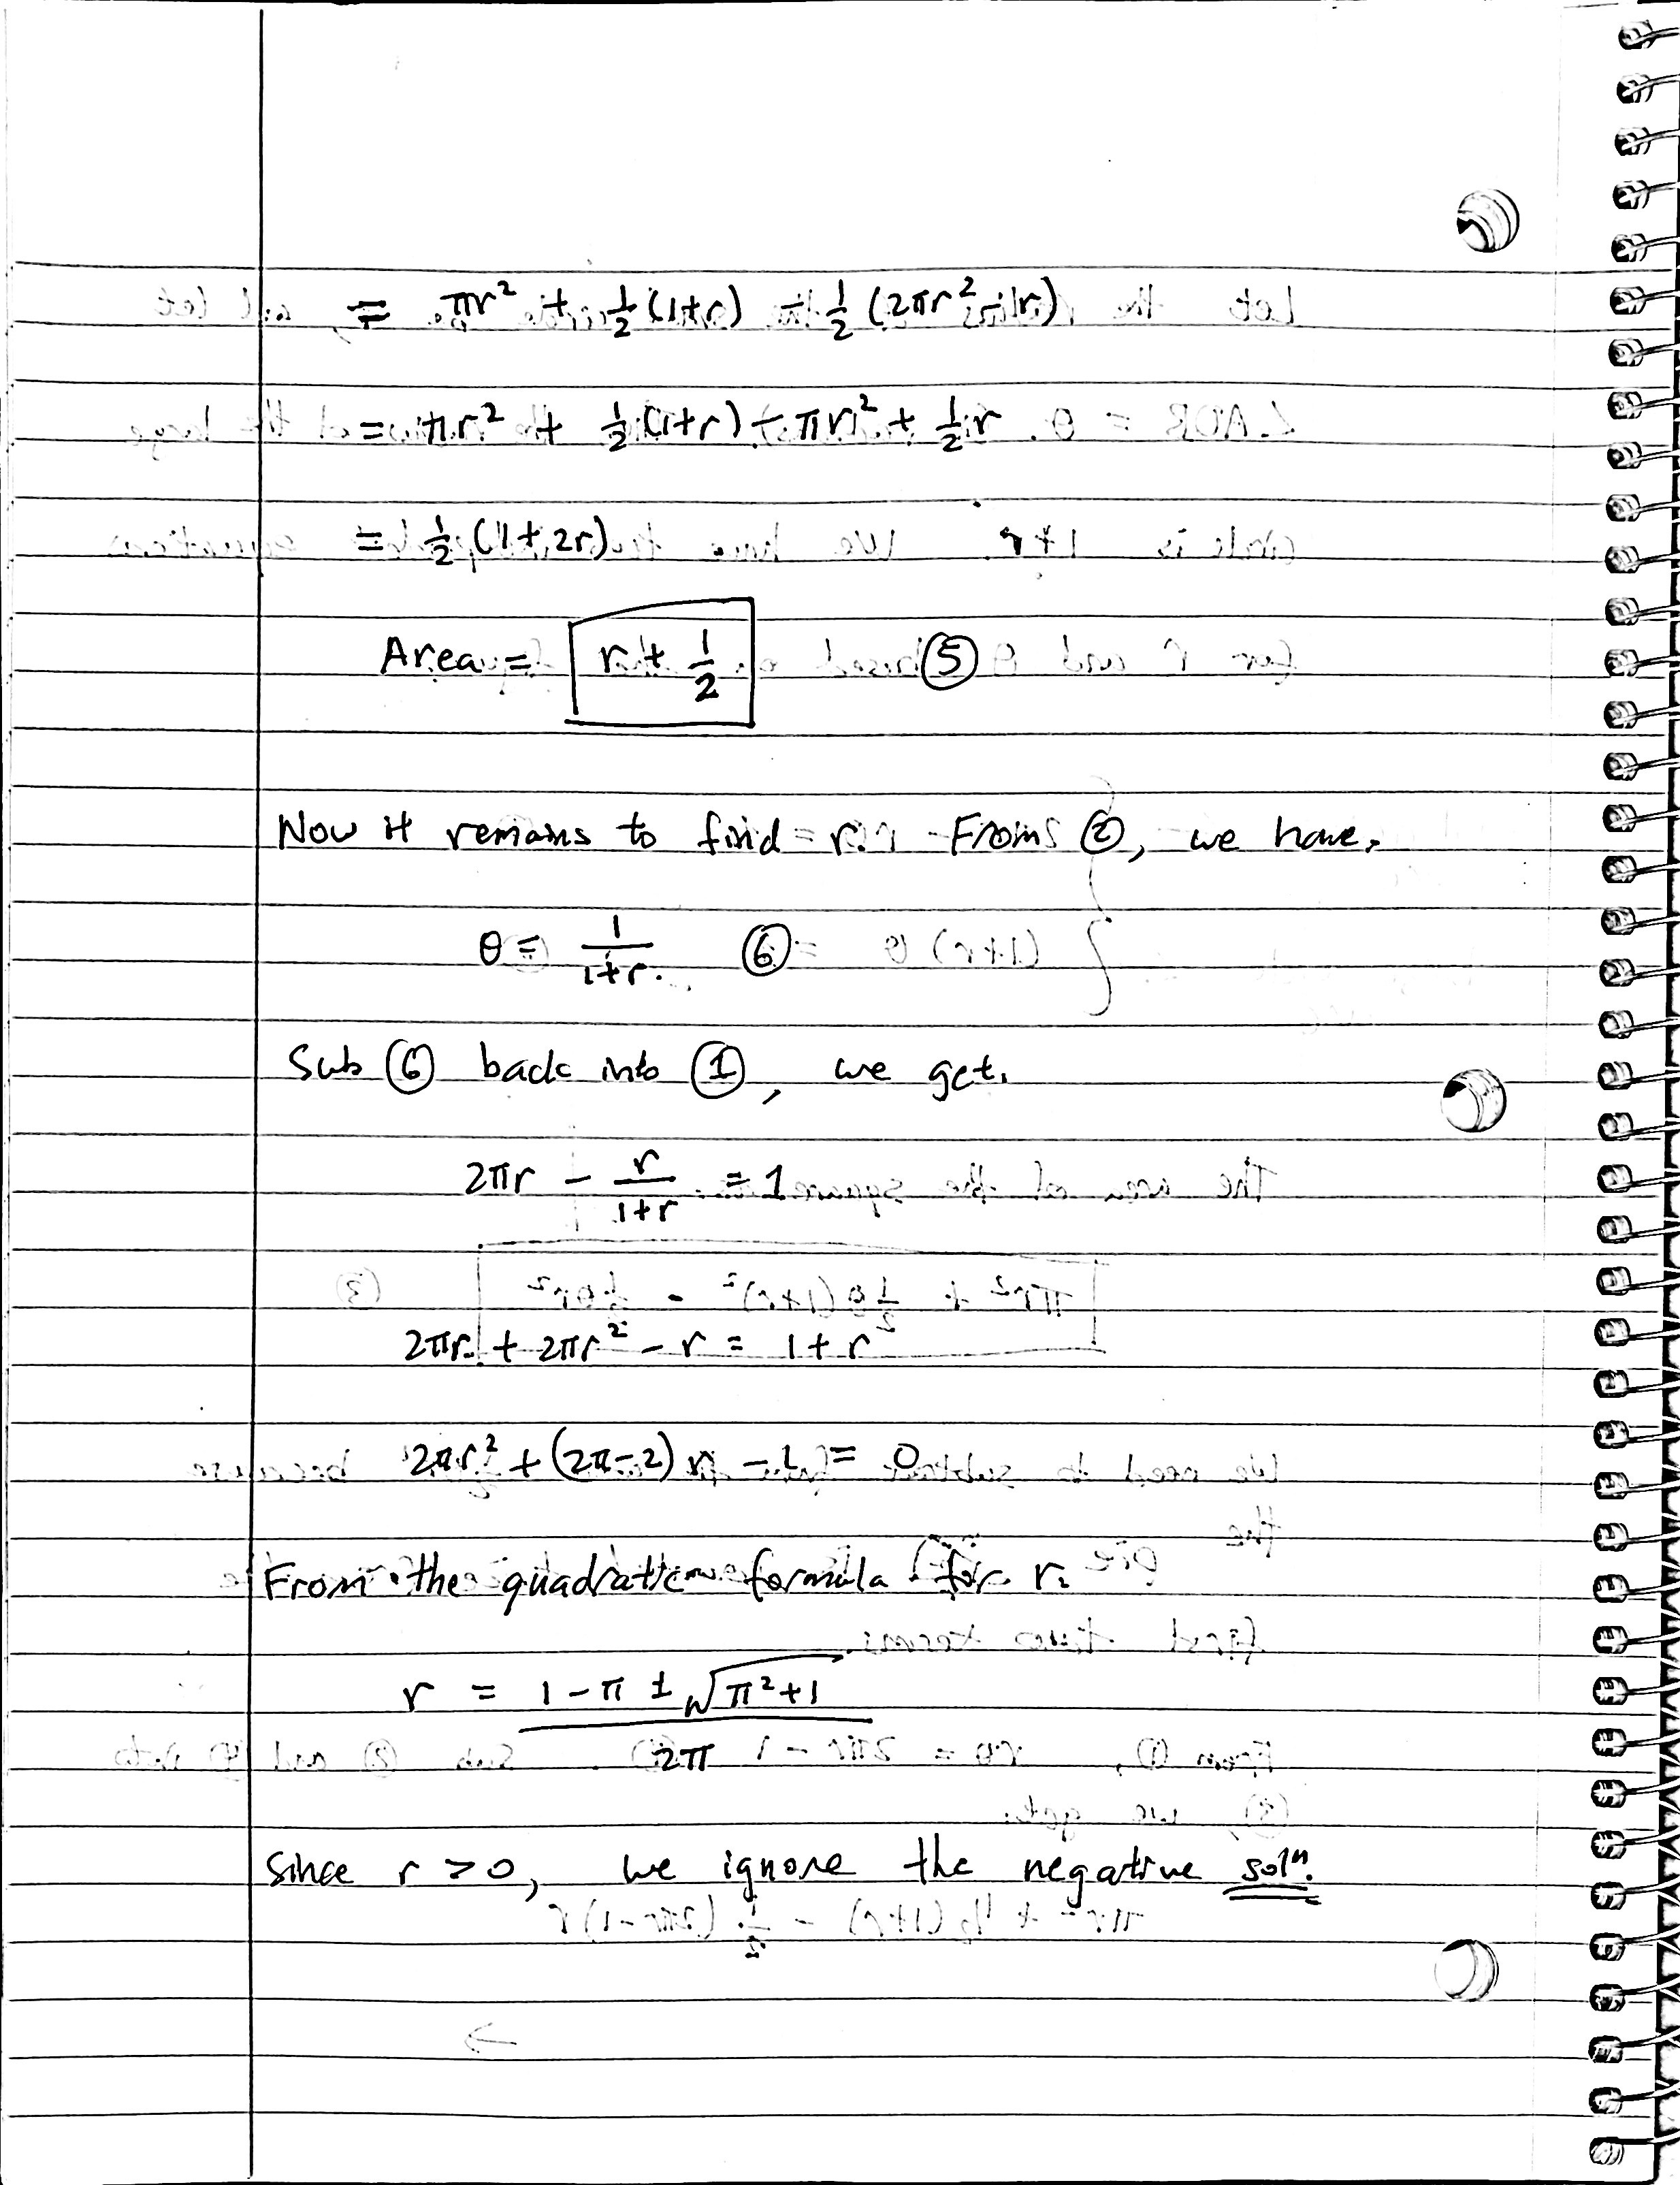 = πr² + ½(1+r) - ½(2πr² - r)
= πr² + ½(1+r) - πr² + ½r
= ½(1+2r)
Area = r + ½ ⑤
Now it remains to find r. From ②, we have,
θ = 1/(1+r) ⑥
Sub ⑥ back into ①, we get,
2πr - r/(1+r) = 1
2πr + 2πr² - r = 1+r
2πr² + (2π-2)r - 1 = 0
From the quadratic formula for r:
r = (1-π ± √(π²+1))/(2π)
Since r > 0, we ignore the negative solⁿ.